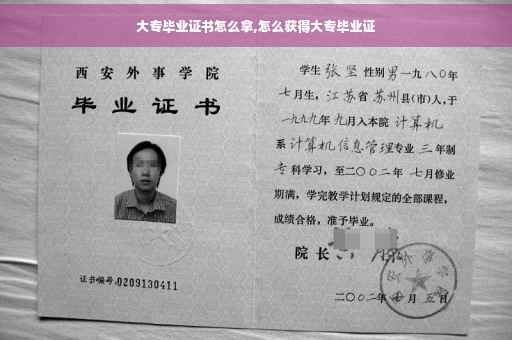 大专毕业证书怎么拿,怎么获得大专毕业证
西安外事学院
毕业证书
证书编号:0209130411
学生 张坚 性别 男 一九八〇年
七月生，江苏省 苏州县(市)人，于
一九九九年 九月入本院 计算机
系 计算机信息管理专业 三 年制
专科学习，至二〇〇二年 七月修业
期满，学完教学计划规定的全部课程，
成绩合格，准予毕业。
院 长
二〇〇二年 月 五 日